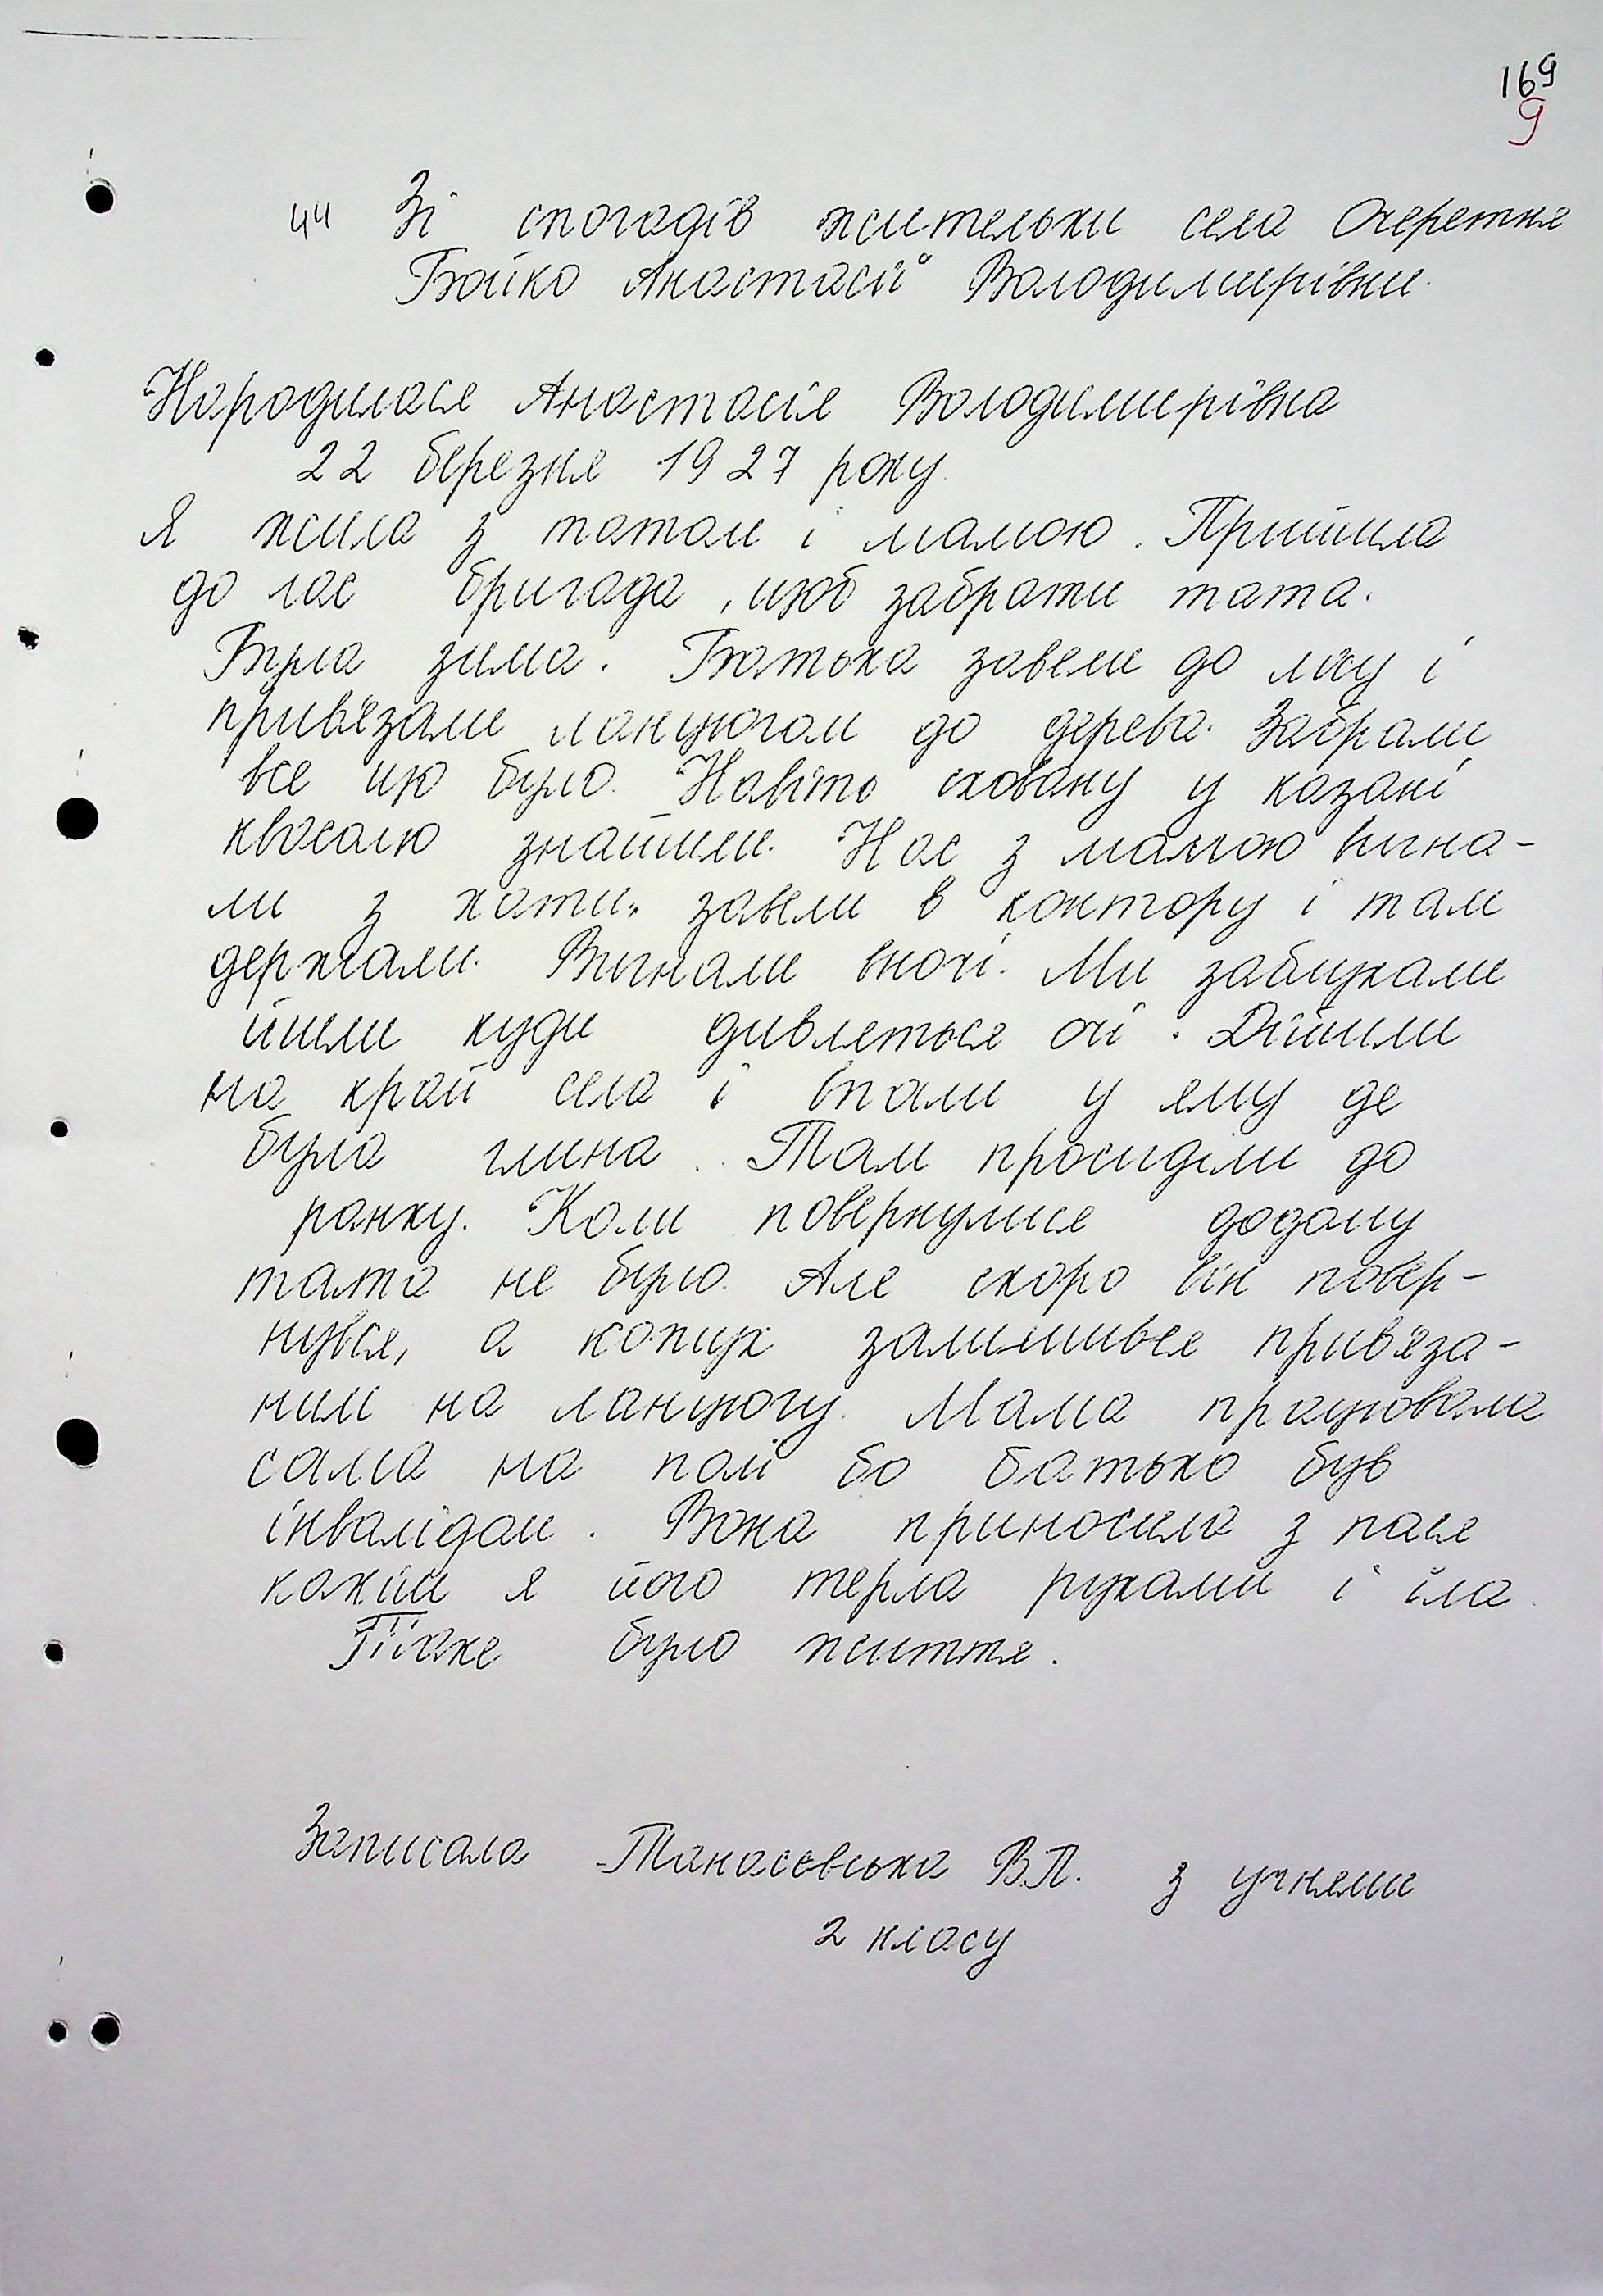 169
9
44 Зі спогадів жительки села Очеретня
Бойко Анастасії Володимирівни.
Народилася Анастасія Володимирівна
22 березня 1927 року.
Я жила з татом і мамою. Прийшла
до нас бригада, щоб забрати тата.
Була зима. Батька завели до лісу і
прив'язали ланцюгом до дерева. Забрали
все що було. Навіть сховану у казані
квасолю знайшли. Нас з мамою вигна-
ли з хати, завели в контору і там
держали. Вигнали вночі. Ми заблукали
йшли куди дивляться очі. Дійшли
на край села і впали у яму де
була глина. Там просиділи до
ранку. Коли повернулися додому
тата не було. Але скоро він повер-
нувся, а кожух залишився прив'яза-
ним на ланцюгу. Мама працювала
сама на полі бо батько був
інвалідом. Вона приносила з поля
кожій я його терла руками і їла.
Тяжке було життя.
Записала Танасевська В.П. з учнями
2 класу